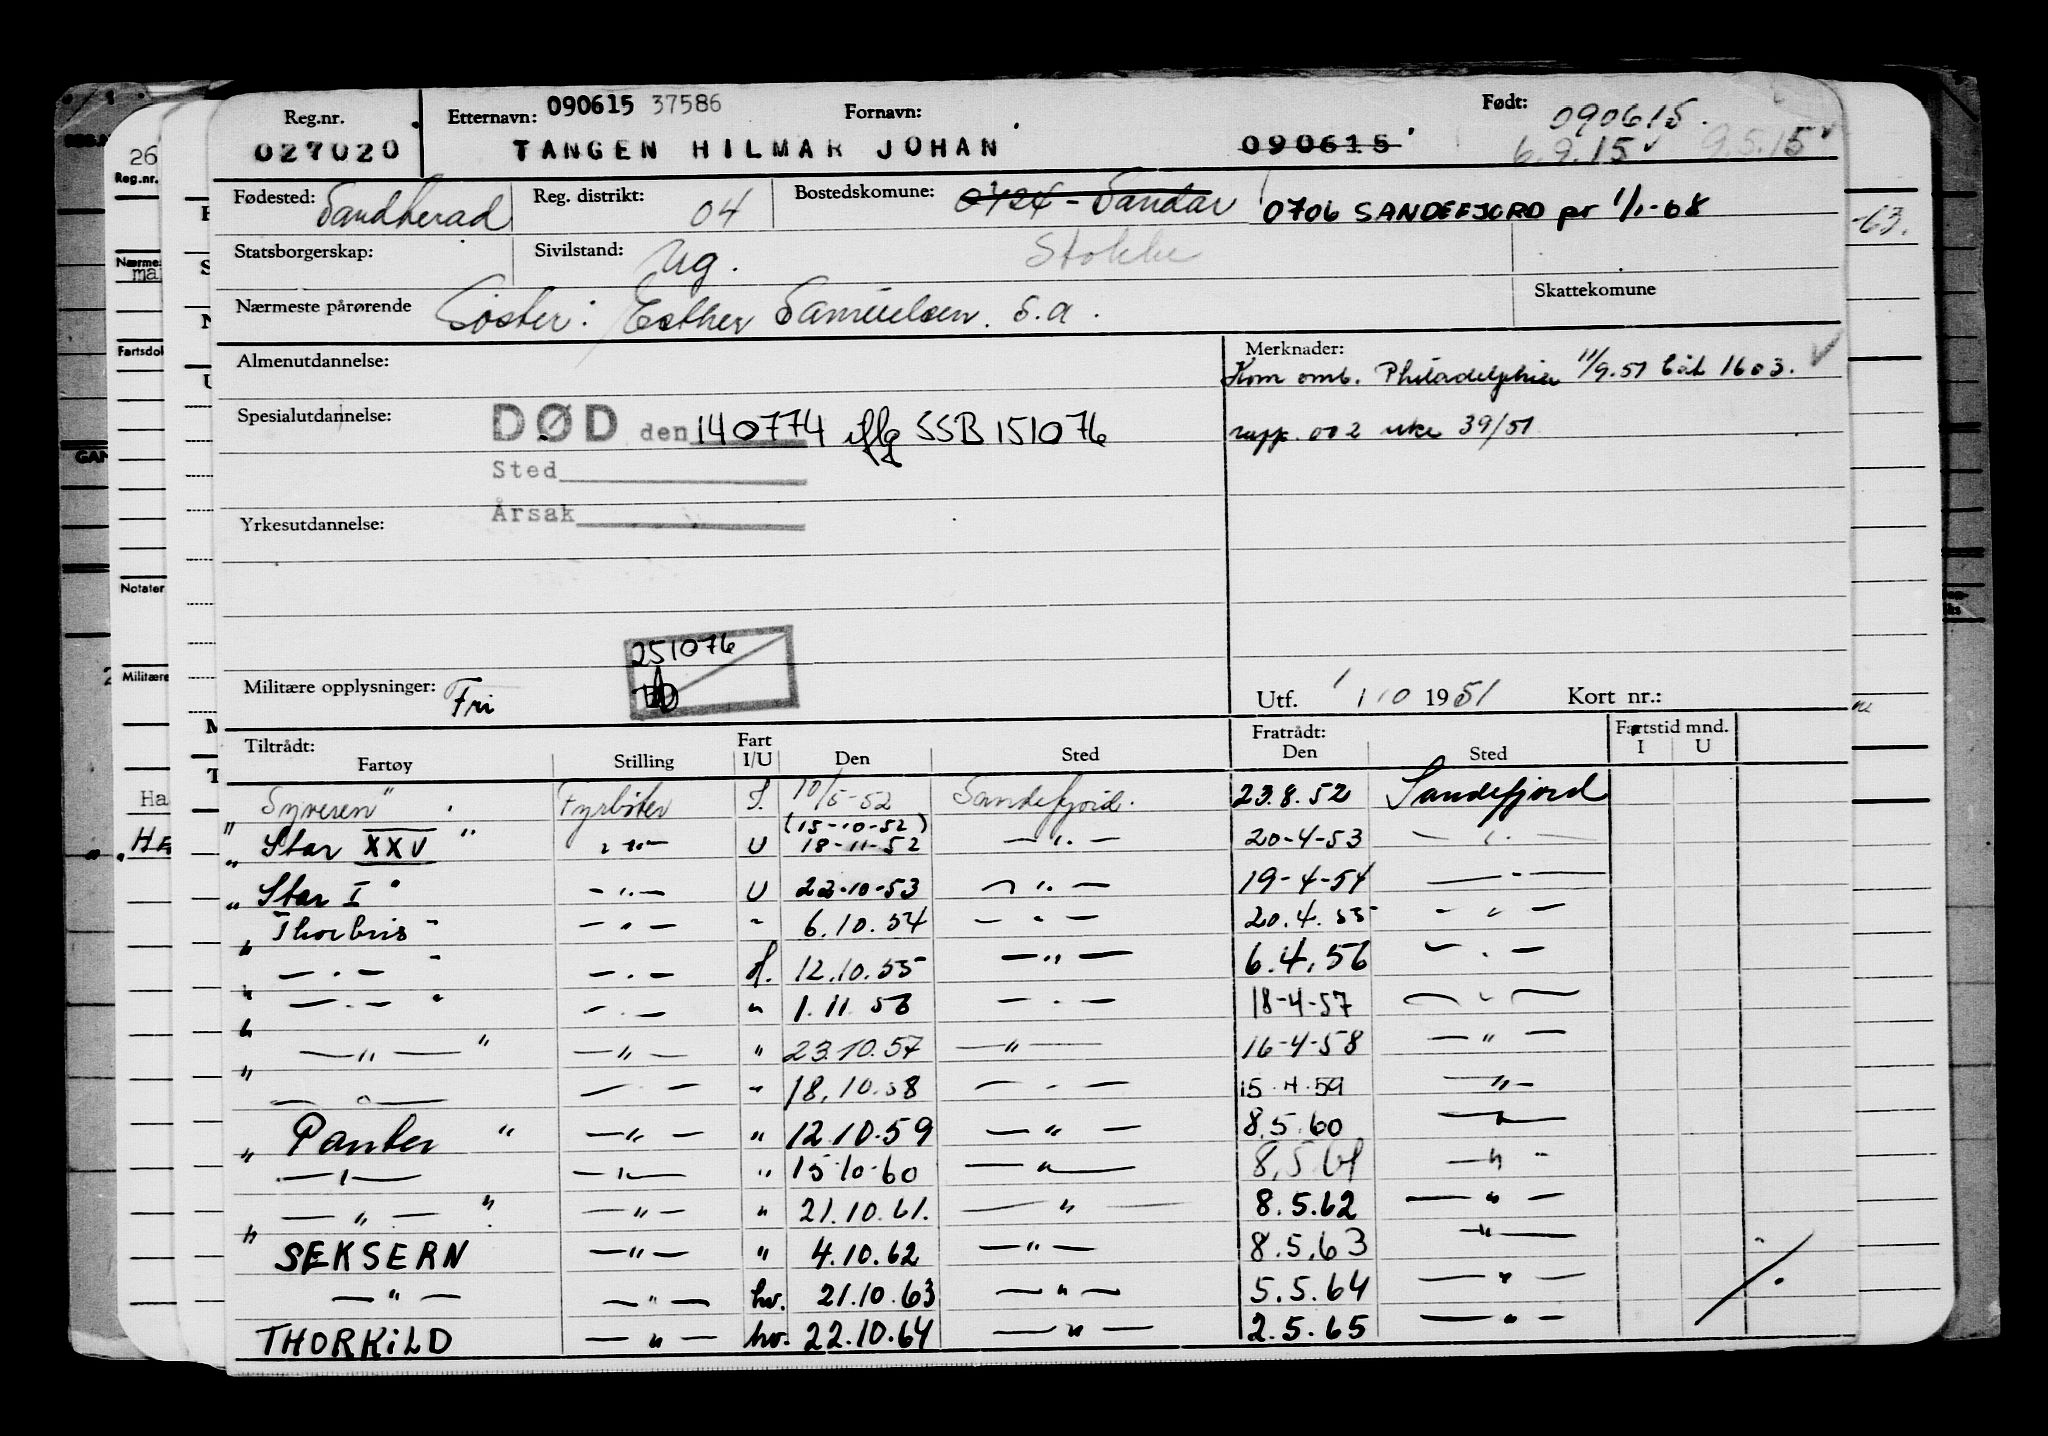 Reg.nr. Etternavn: 090615 37586 Fornavn: Født: 090615.
027020 TANGEN HILMAR JOHAN 090615 6.9.15 9.5.15
Fødested: Sandherad Reg. distrikt: 04 Bostedskomune: 0724 - Sandar 0706 SANDEFJORD pr 1/1-68
Statsborgerskap: Sivilstand: Ug. Stokke
Nærmeste pårørende Søster: Esther Samuelsen. s.a. Skattekomune
Almenutdannelse: Merknader:
Kom omb. Philadelphia 11/9.51 båt 1603.
Spesialutdannelse: DØD den 140774 iflg SSB 151076 rapp. 002 uke 39/51
Sted
Årsak
Yrkesutdannelse:
251076
Militære opplysninger: Fri Utf. 1 10 1951 Kort nr.:
Tiltrådt: Fart Fratrådt: Fartstid mnd.
Fartøy Stilling I/U Den Sted Den Sted I U
"Syveren" Fyrbøter 10/5-52 Sandefjord. 23.8.52 Sandefjord
(15-10-52)
"Star XXV" -"- U 18-11-52 -"- 20-4-53 -"-
"Star I" -"- U 22-10-53 -"- 19-4-54 -"-
"Thorbris" -"- " 6.10.54 -"- 20.4.55 -"-
" -"- " -"- 12.10.55 -"- 6.4.56 -"-
" -"- " -"- " 1.11.56 -"- 18-4-57 -"-
" -"- " -"- " 23.10.57 -"- 16-4-58 -"-
" -"- -"- " 18.10.58 -"- 15.4.59 -"-
"Panter" -"- " 12.10.59 -"- 8.5.60 -"-
-"- -"- " 15-10-60 -"- 8.5.61 -"-
" -"- " -"- " 21.10.61. -"- 8.5.62 -"-
" SEKSERN -"- " 4.10.62 -"- 8.5.63 -"-
-"- -"- hv. 21.10.63 -"- 5.5.64 -"-
THORKILD -"- hv. 22.10.64 -"- 2.5.65 -"-
26
Reg.nr.
Nærme
ma
Fartsdol
GAN
Notater
Militære
Ha
-63.